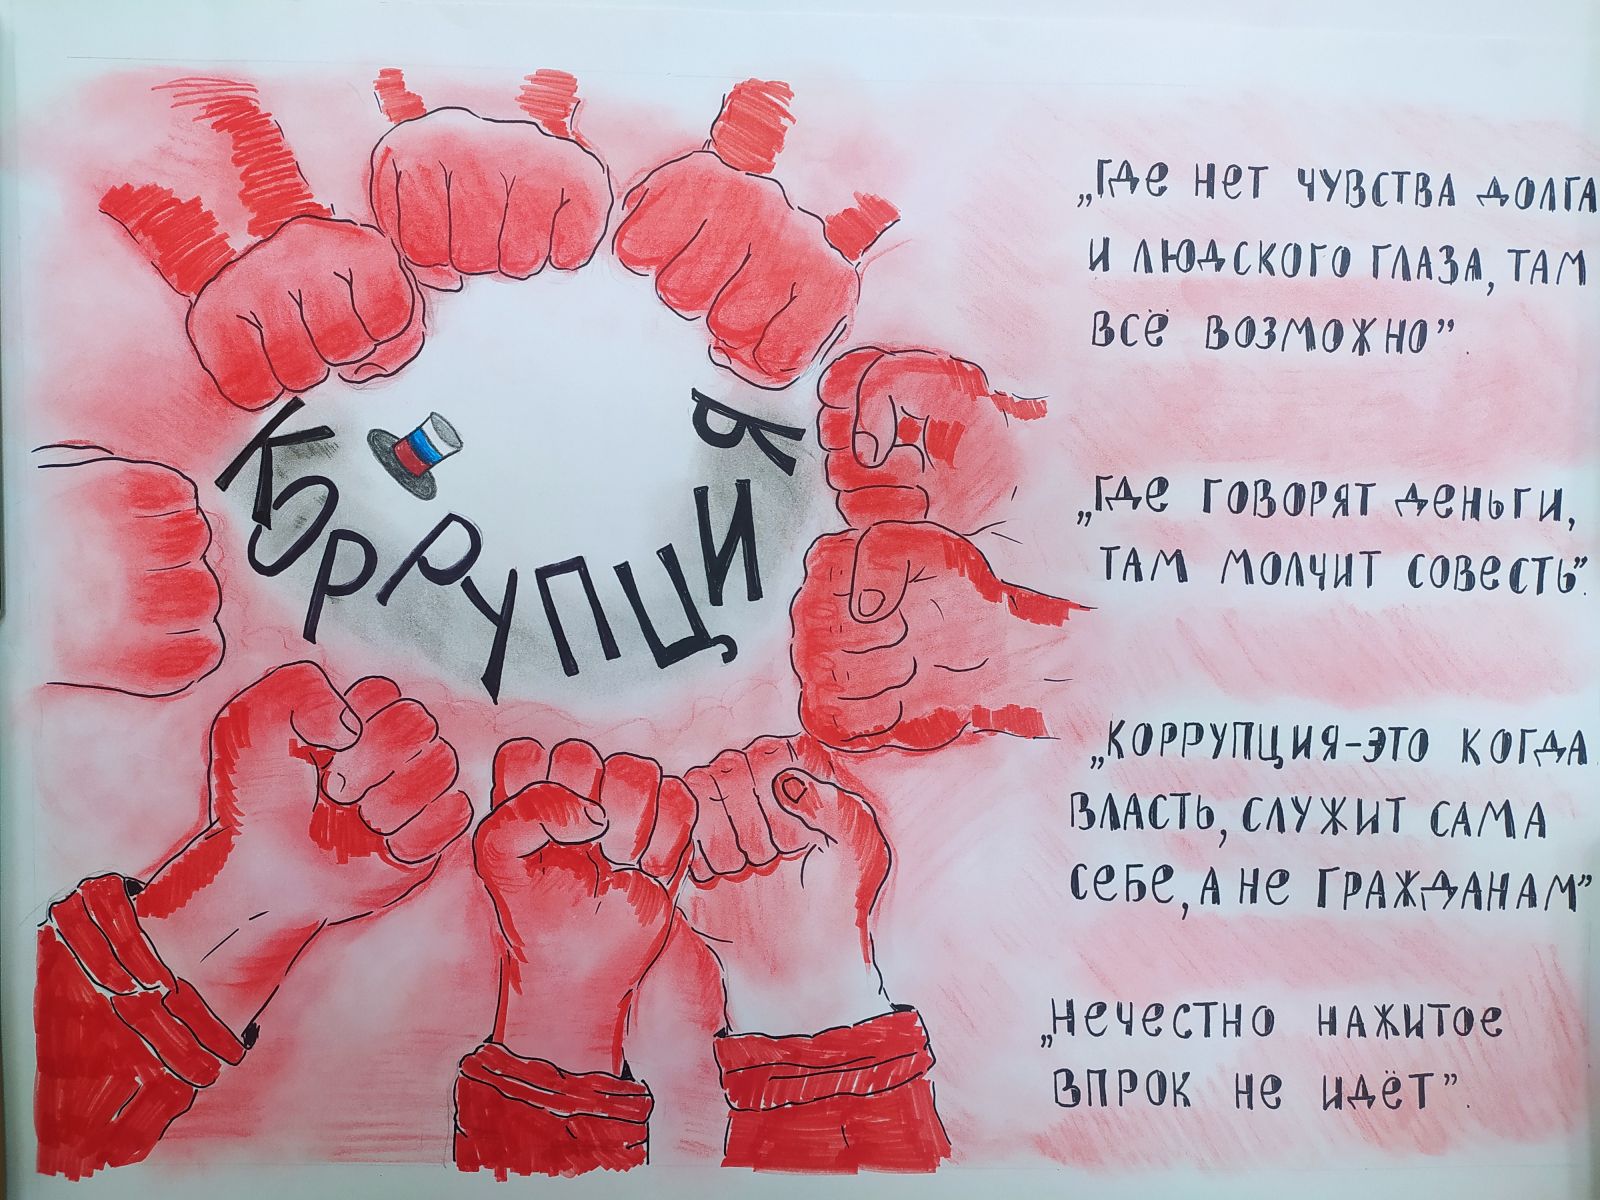 КОРРУПЦИЯ
„Где нет чувства долга
и людского глаза, там
всё возможно”.
„Где говорят деньги,
там молчит совесть”.
„Коррупция-это когда
власть, служит сама
себе, а не гражданам”
„Нечестно нажитое
впрок не идёт”.